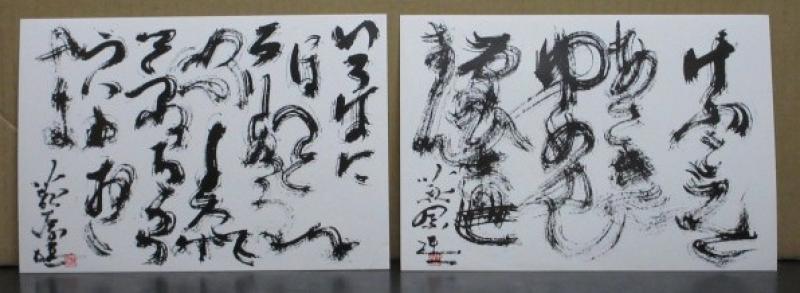 いろはに
ほへと
ちりぬるを
わかよたれ
そつねならむ
うゐのおく
やま
けふこえて
あさき
ゆめみし
ゑひもせ
す